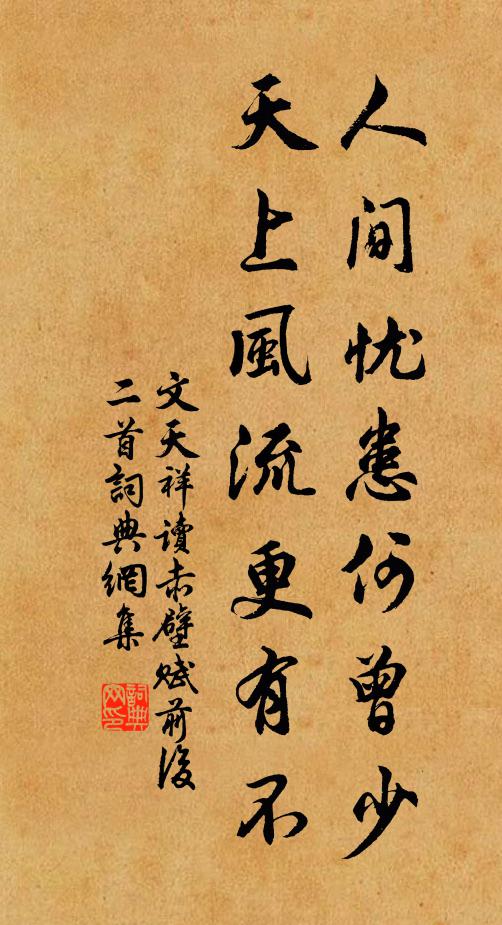 人间忧患何曾少
天上風流更有不
文天祥讀赤壁赋前後
二首詞典網集
詞典
网印